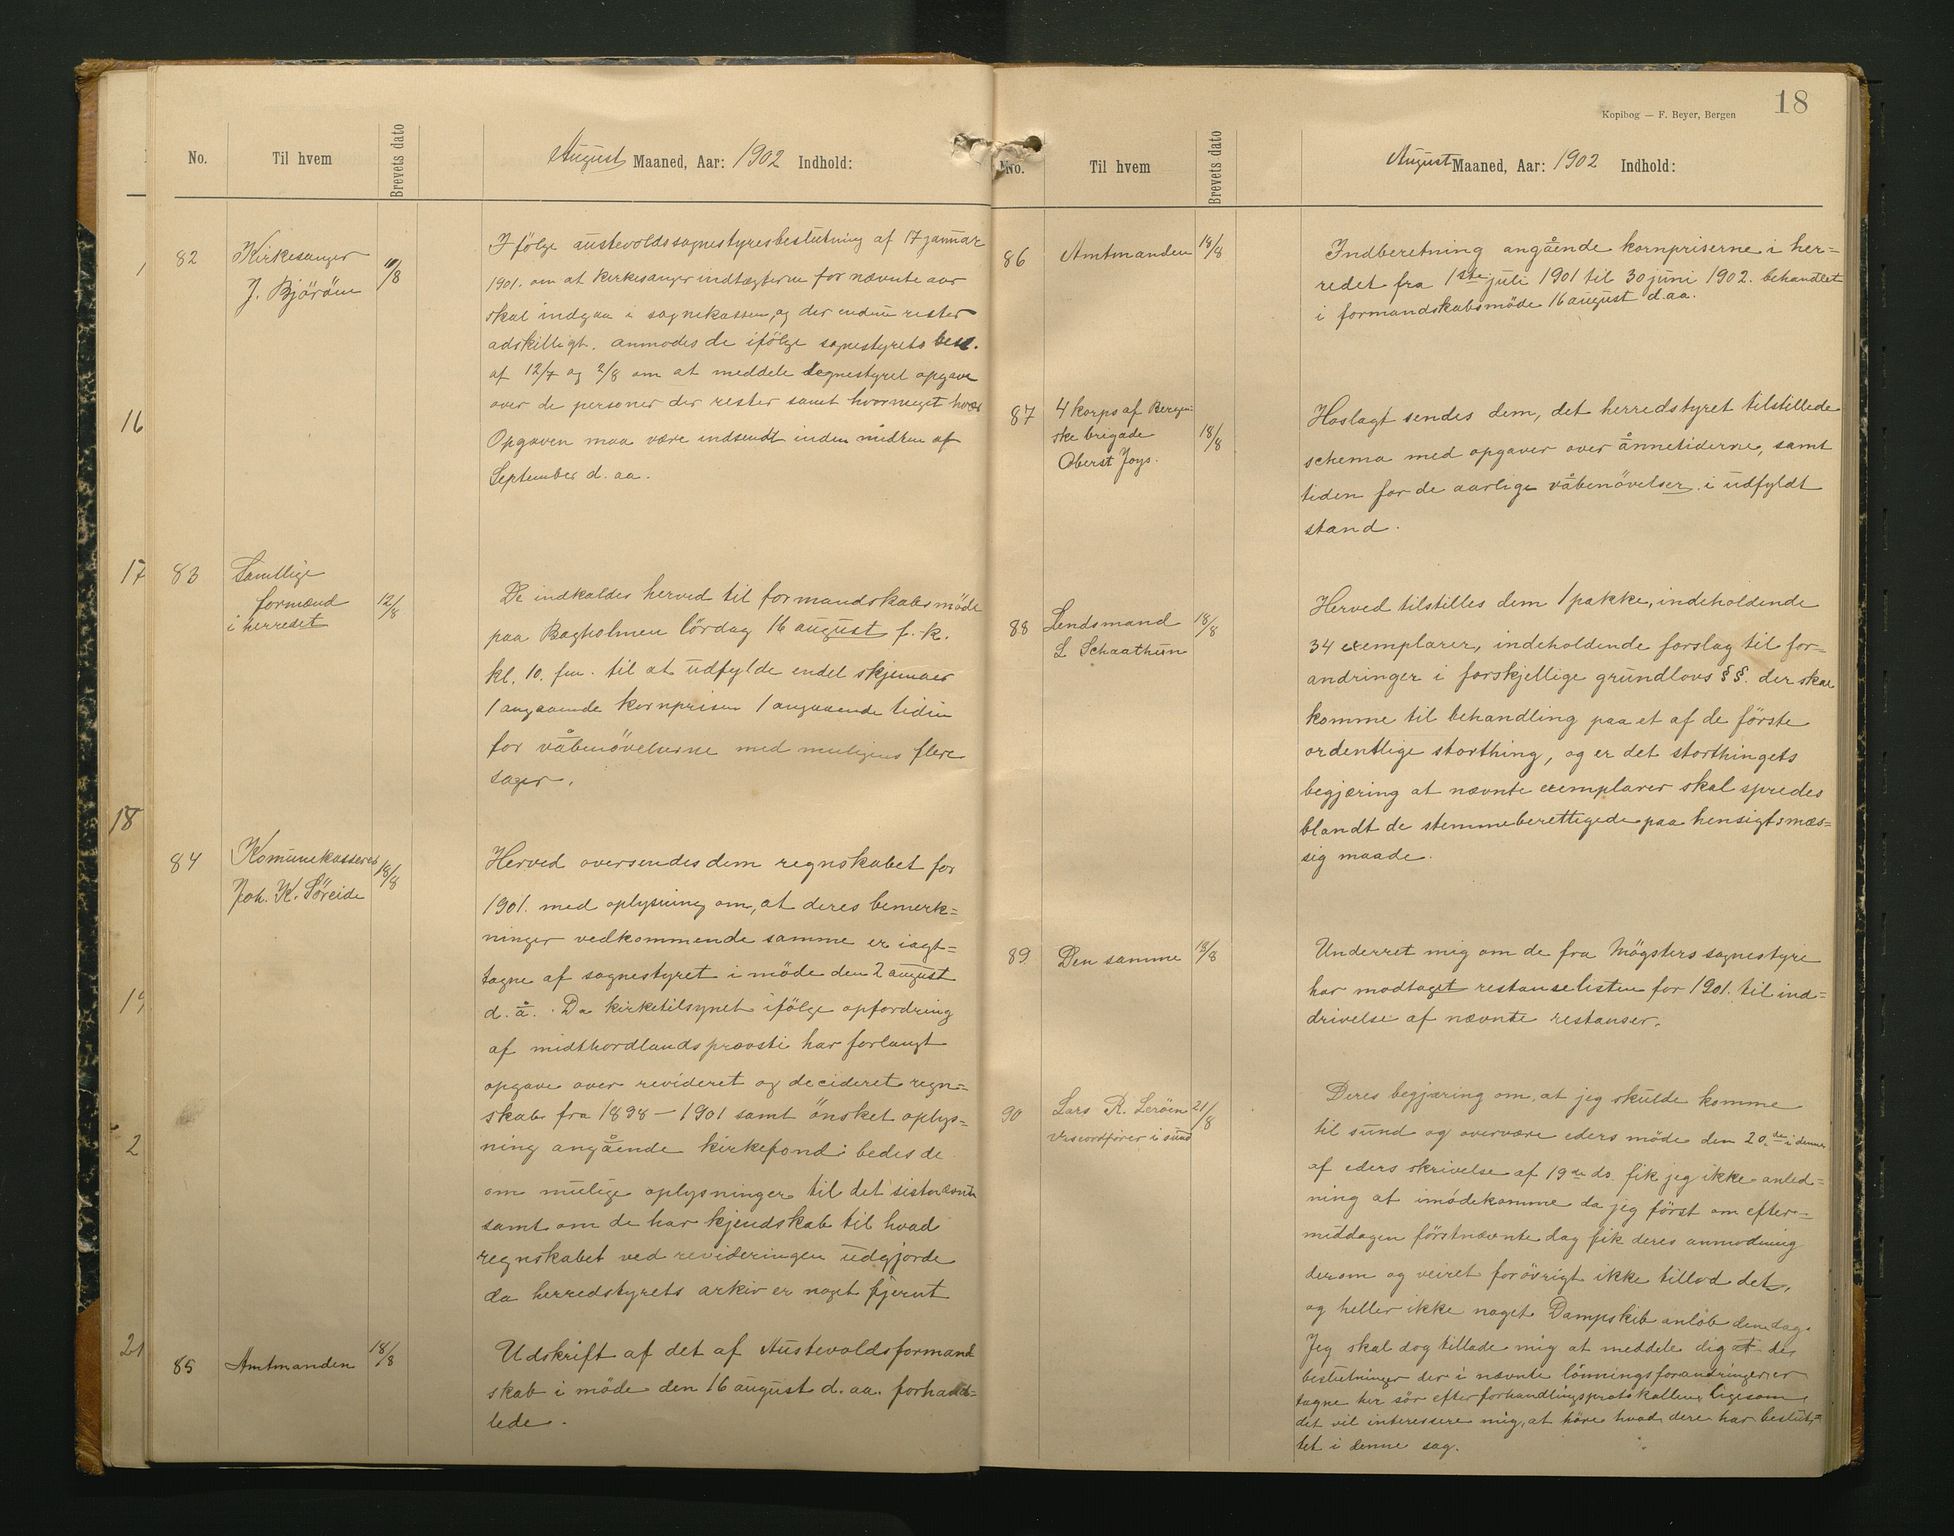 No.
Til hvem
Brevets dato
August Maaned, Aar: 1902 Indhold:
82
Kirkesanger
J. Björöen
11/8
I følge austevoldssognestyresbeslutning af 17 januar
1901. om at kirkesangerindtægterne for nævnte aar
skal indgaa i sognekassen, og der endnu rester
adskilligt, anmodes de ifölge sognestyrets besl.
af 12/7 og 2/8 om at meddele sognestyret opgave
over de personer der rester samt hvormeget hver
Opgaven maa være indsendt inden midten af
September d. aa.
83
Samtlige
formænd
i herredet
12/8
De indkaldes herved til formandskabsmöde
paa Bagholmen lördag 16 august f. k.
kl. 10. fm. til at udfylde endel skjemaer
1 angaaende kornprisen 1 angaaende tiden
for våbenövelserne med muligens flere
sager.
84
Komunekasserer
Joh. K. Söreide
18/8
Herved oversendes dem regnskabet for
1901. med oplysning om, at deres bemerk=
ninger vedkommende samme er iagt=
tagne af sognestyret i möde den 2 august
d. å. Da kirketilsynet ifölge opfordring
af midthordlands provsti har forlangt
opgave over revideret og decideret regn=
skab fra 1898 — 1901 samt önsket oplys=
ning angående kirkefond: bedes de
om mulige oplysninger til det sistnævnte
samt om de har kjendskab til hvad
regnskabet ved revideringen udgjorde
da herredstyrets arkiv er noget fjernt
85
Amtmanden
18/8
Udskrift af det af Austevoldsformand
skab i möde den 16 august d. aa. forhand=
lede.
16
17
18
19
2
21
18
Kopibog — F. Beyer, Bergen
No.
Til hvem
Brevets dato
August Maaned, Aar: 1902 Indhold:
86
Amtmanden
18/8
Indberetning angående kornpriserne i her=
redet fra 1ste juli 1901 til 30 juni 1902. behandlet
i formandskabsmöde 16 august d. aa.
87
4 korps af Bergen
ske brigade
Oberst Joys.
18/8
Hoslagt sendes dem, det herredstyret tilstillede
schema med opgaver over ånnetiderne, samt
tiden for de aarlige våbenövelser. i udfyldt
stand.
88
Lendsmand
L Schaathun
18/8
Herved tilstilles dem 1 pakke, indeholdende
34 exemplarer, indeholdende forslag til for=
andringer i forskjellige grundlovs §§. der skal
komme til behandling paa et af de förste
ordentlige storthing, og er det storthingets
begjæring at nævnte exemplarer skal spredes
blandt de stemmeberettigede paa hensigtsmæs=
sig maade.
89
Den samme
18/8
Underret mig om de fra Mögsters sognestyre
har modtaget restanselisten for 1901. til ind=
drivelse af nævnte restanser.
90
Lars R. Leröen
viseordförer i sund
21/8
Deres begjæring om, at jeg skulde komme
til sund og overvære eders möde den 20de i denne
af eders skrivelse af 19de ds. fik jeg ikke anled=
ning at imödekomme da jeg först om efter=
middagen förstnævnte dag fik deres anmodning
derom og veiret forövrigt ikke tillod det,
og heller ikke noget Dampskib anlöb den dag.
Jeg skal dog tillade mig at meddele dig at de
beslutninger der i nævnte lönningsforandringer er
tagne her sör efter forhandlingsprotokollen, Ligesom
det vil interessere mig, at höre hvad dere har beslut=
tet i denne sag.